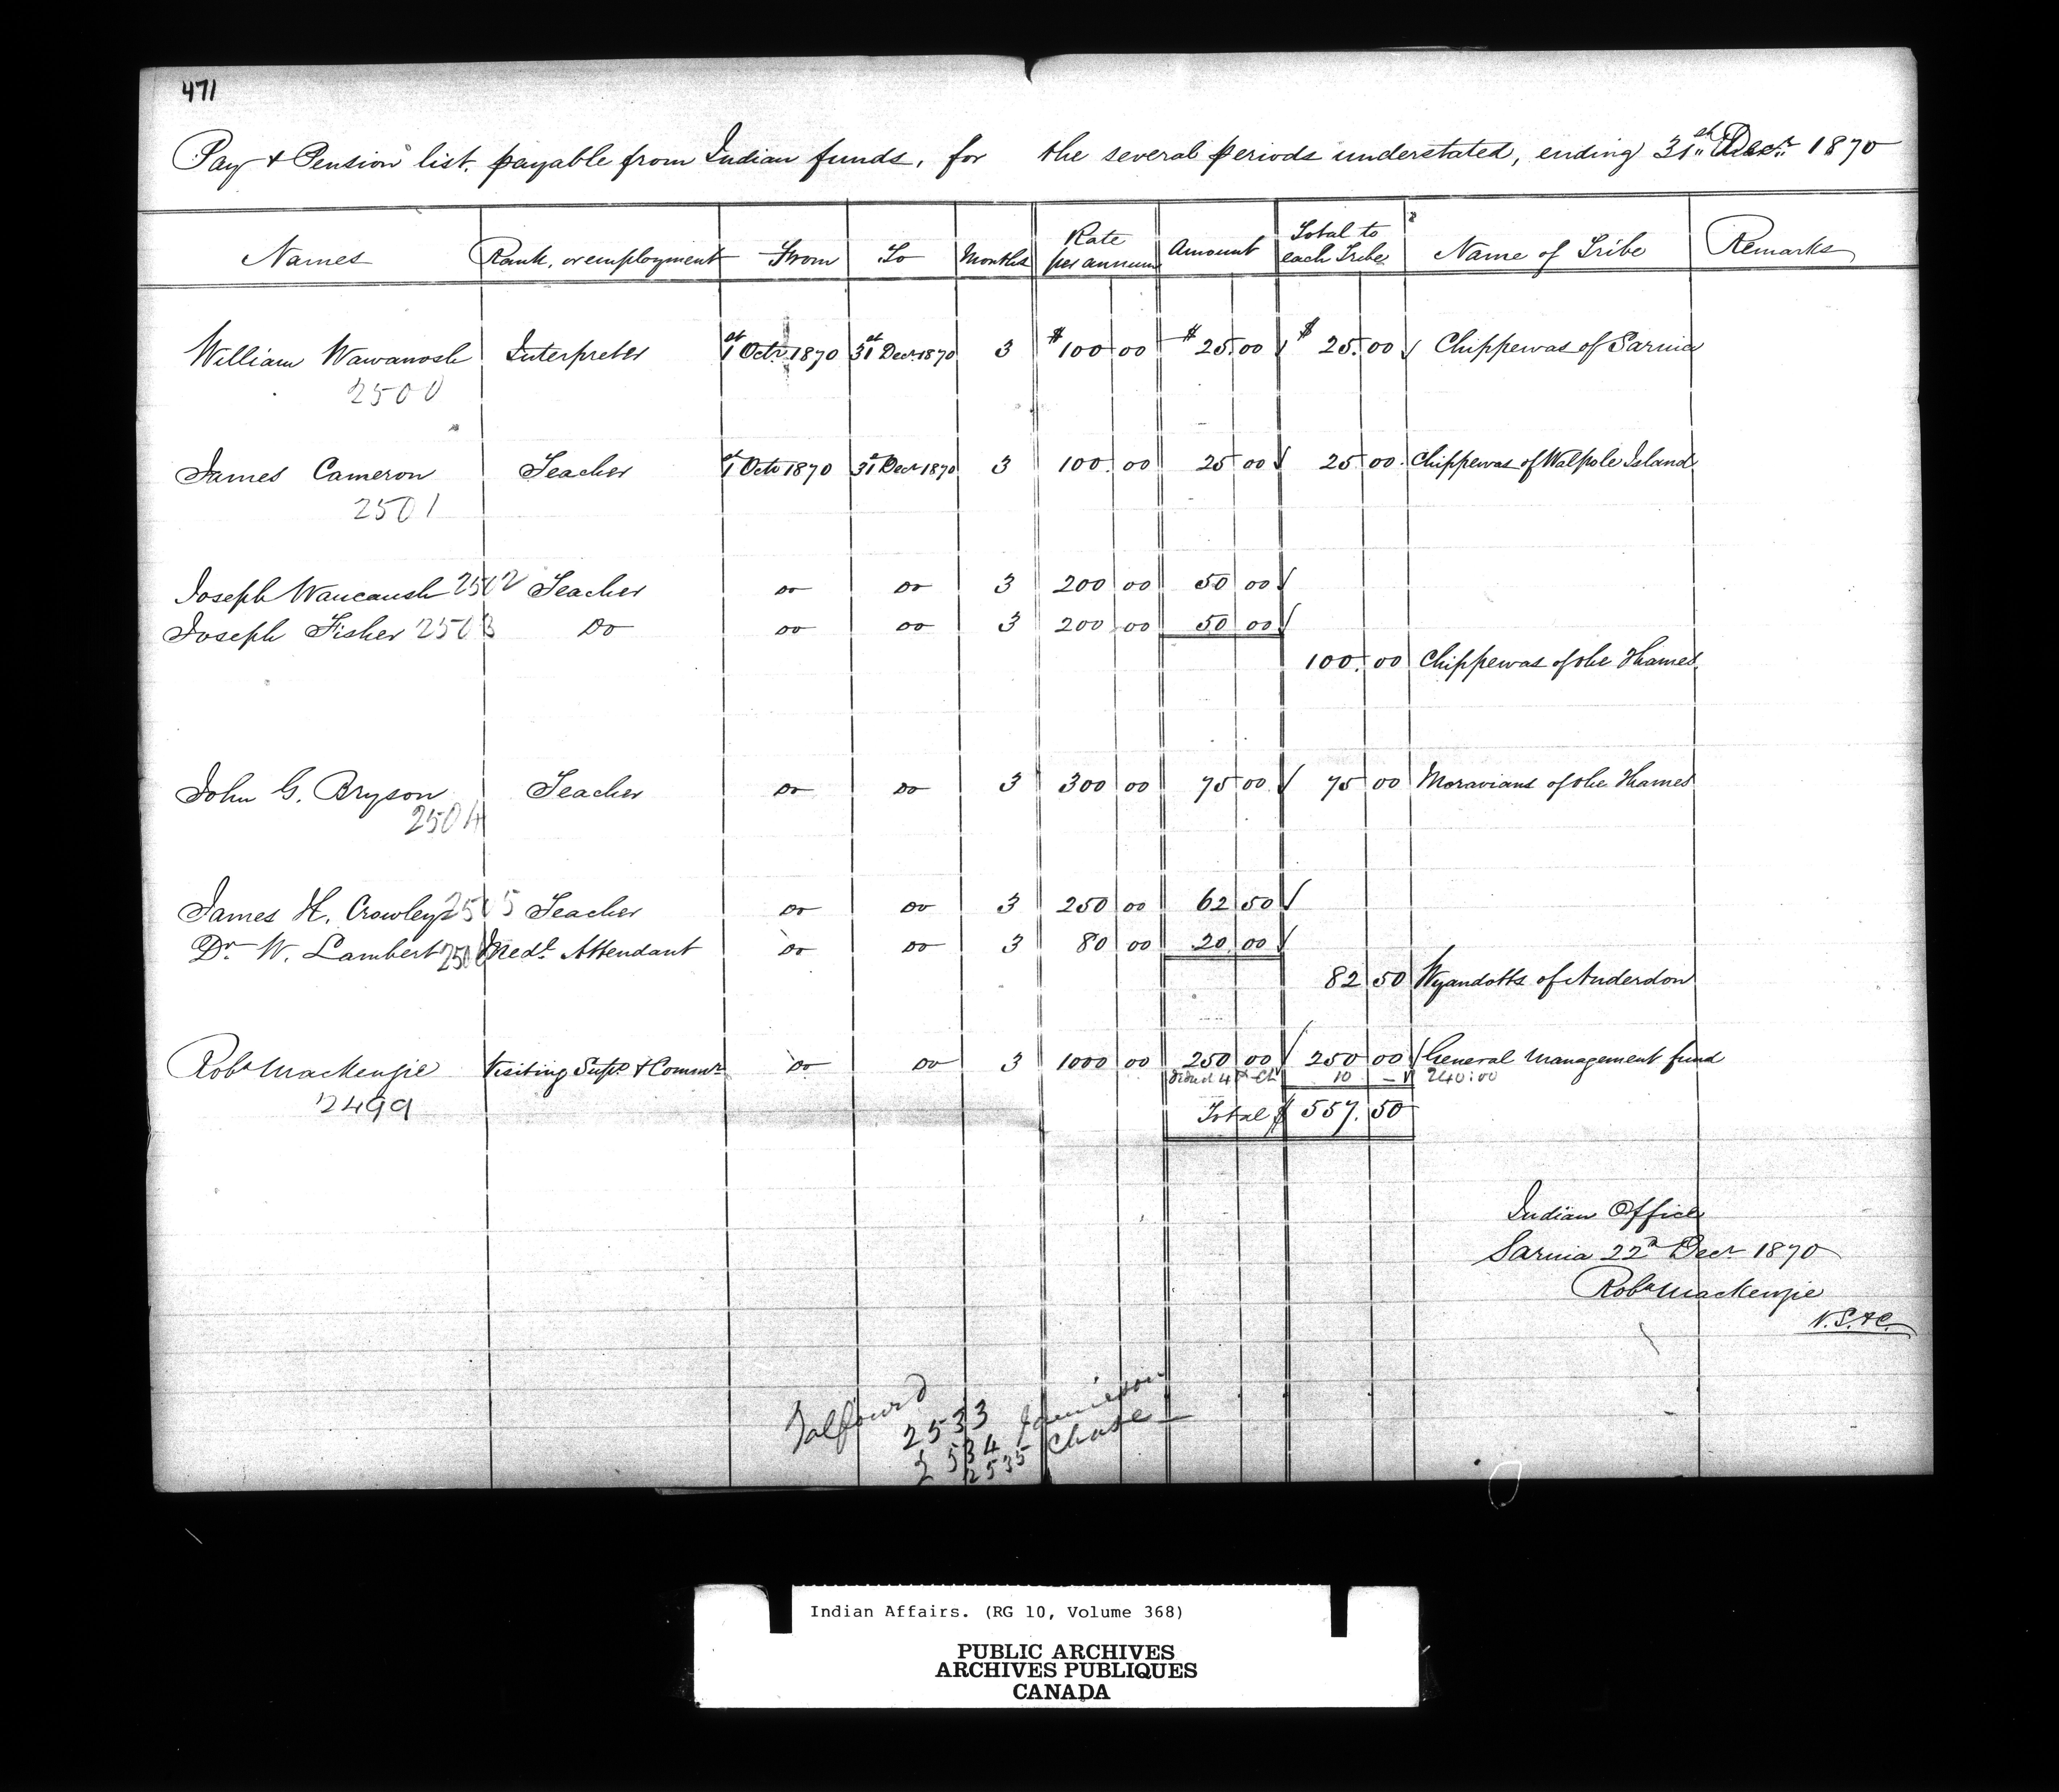 471
Pay & Pension list, payable from Indian funds, for the several periods understated, ending 31st Decr. 1870
Names Rank, or employment From To Months Rate per annum Amount Total to each Tribe Name of Tribe Remarks
William Wawanosh Interpreter 1st Octr. 1870 31st Decr. 1870 3 $100 00 $25.00 $25.00 Chippewas of Sarnia
2500
James Cameron Teacher 1st Octr 1870 31st Decr 1870 3 100. 00 25 00 25.00. Chippewas of Walpole Island
2501
Joseph Waucaush 2502 Teacher Do Do 3 200 00 50 00
Joseph Fisher 2503 Do Do Do 3 200 00 50 00
100. 00 Chippewas of the Thames
John G. Bryson Teacher Do Do 3 300 00 75 00 75 00 Moravians of the Thames
2504
James H. Crowley 2505 Teacher Do Do 3 250 00 62 50
Dr. W. Lambert 250 Medl. Attendant Do Do 3 80 00 20 00
82 50 Wyandotts of Anderdon
Robt Mackenzie Visiting Supt. & Commr. Do Do 3 1000 00 250 00 250 00 General Management fund
4 10 — 240:00
2499
Total $ 557. 50
Indian Office
Sarnia 22d Decr 1870
Robt Mackenzie
V.S.&C.
Talfourd
2533
2534 Jamieson
2535 Chase
Indian Affairs. (RG 10, Volume 368)
PUBLIC ARCHIVES
ARCHIVES PUBLIQUES
CANADA